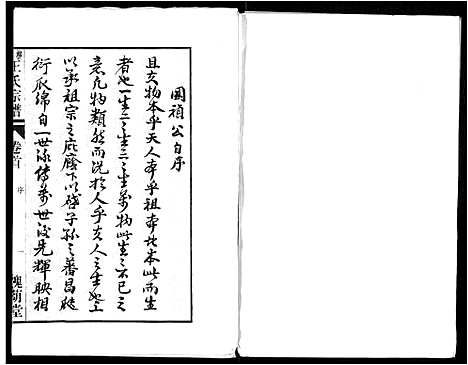 國禎公自序
且夫物本乎天人本乎祖本此本此而生
者也一生二二生三三生萬物此生生不已之
意凡物類然而況於人乎夫人之生也上
以承祖宗之庇廕下以啓子孫之蕃昌瓞
衍瓜綿自一世派傳萬世後先輝映相
王氏宗譜
卷首
序
一
槐蔭堂